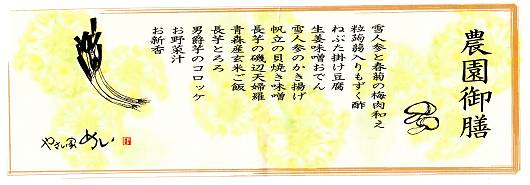 農園御膳
雪人参と春菊の梅肉和え
粒蒟蒻入りもずく酢
ねぶた掛け豆腐
生姜味噌おでん
雪人参のかき揚げ
帆立の貝焼き味噌
長芋の磯辺天婦羅
青森産玄米ご飯
長芋とろろ
男爵芋のコロッケ
お野菜汁
お新香